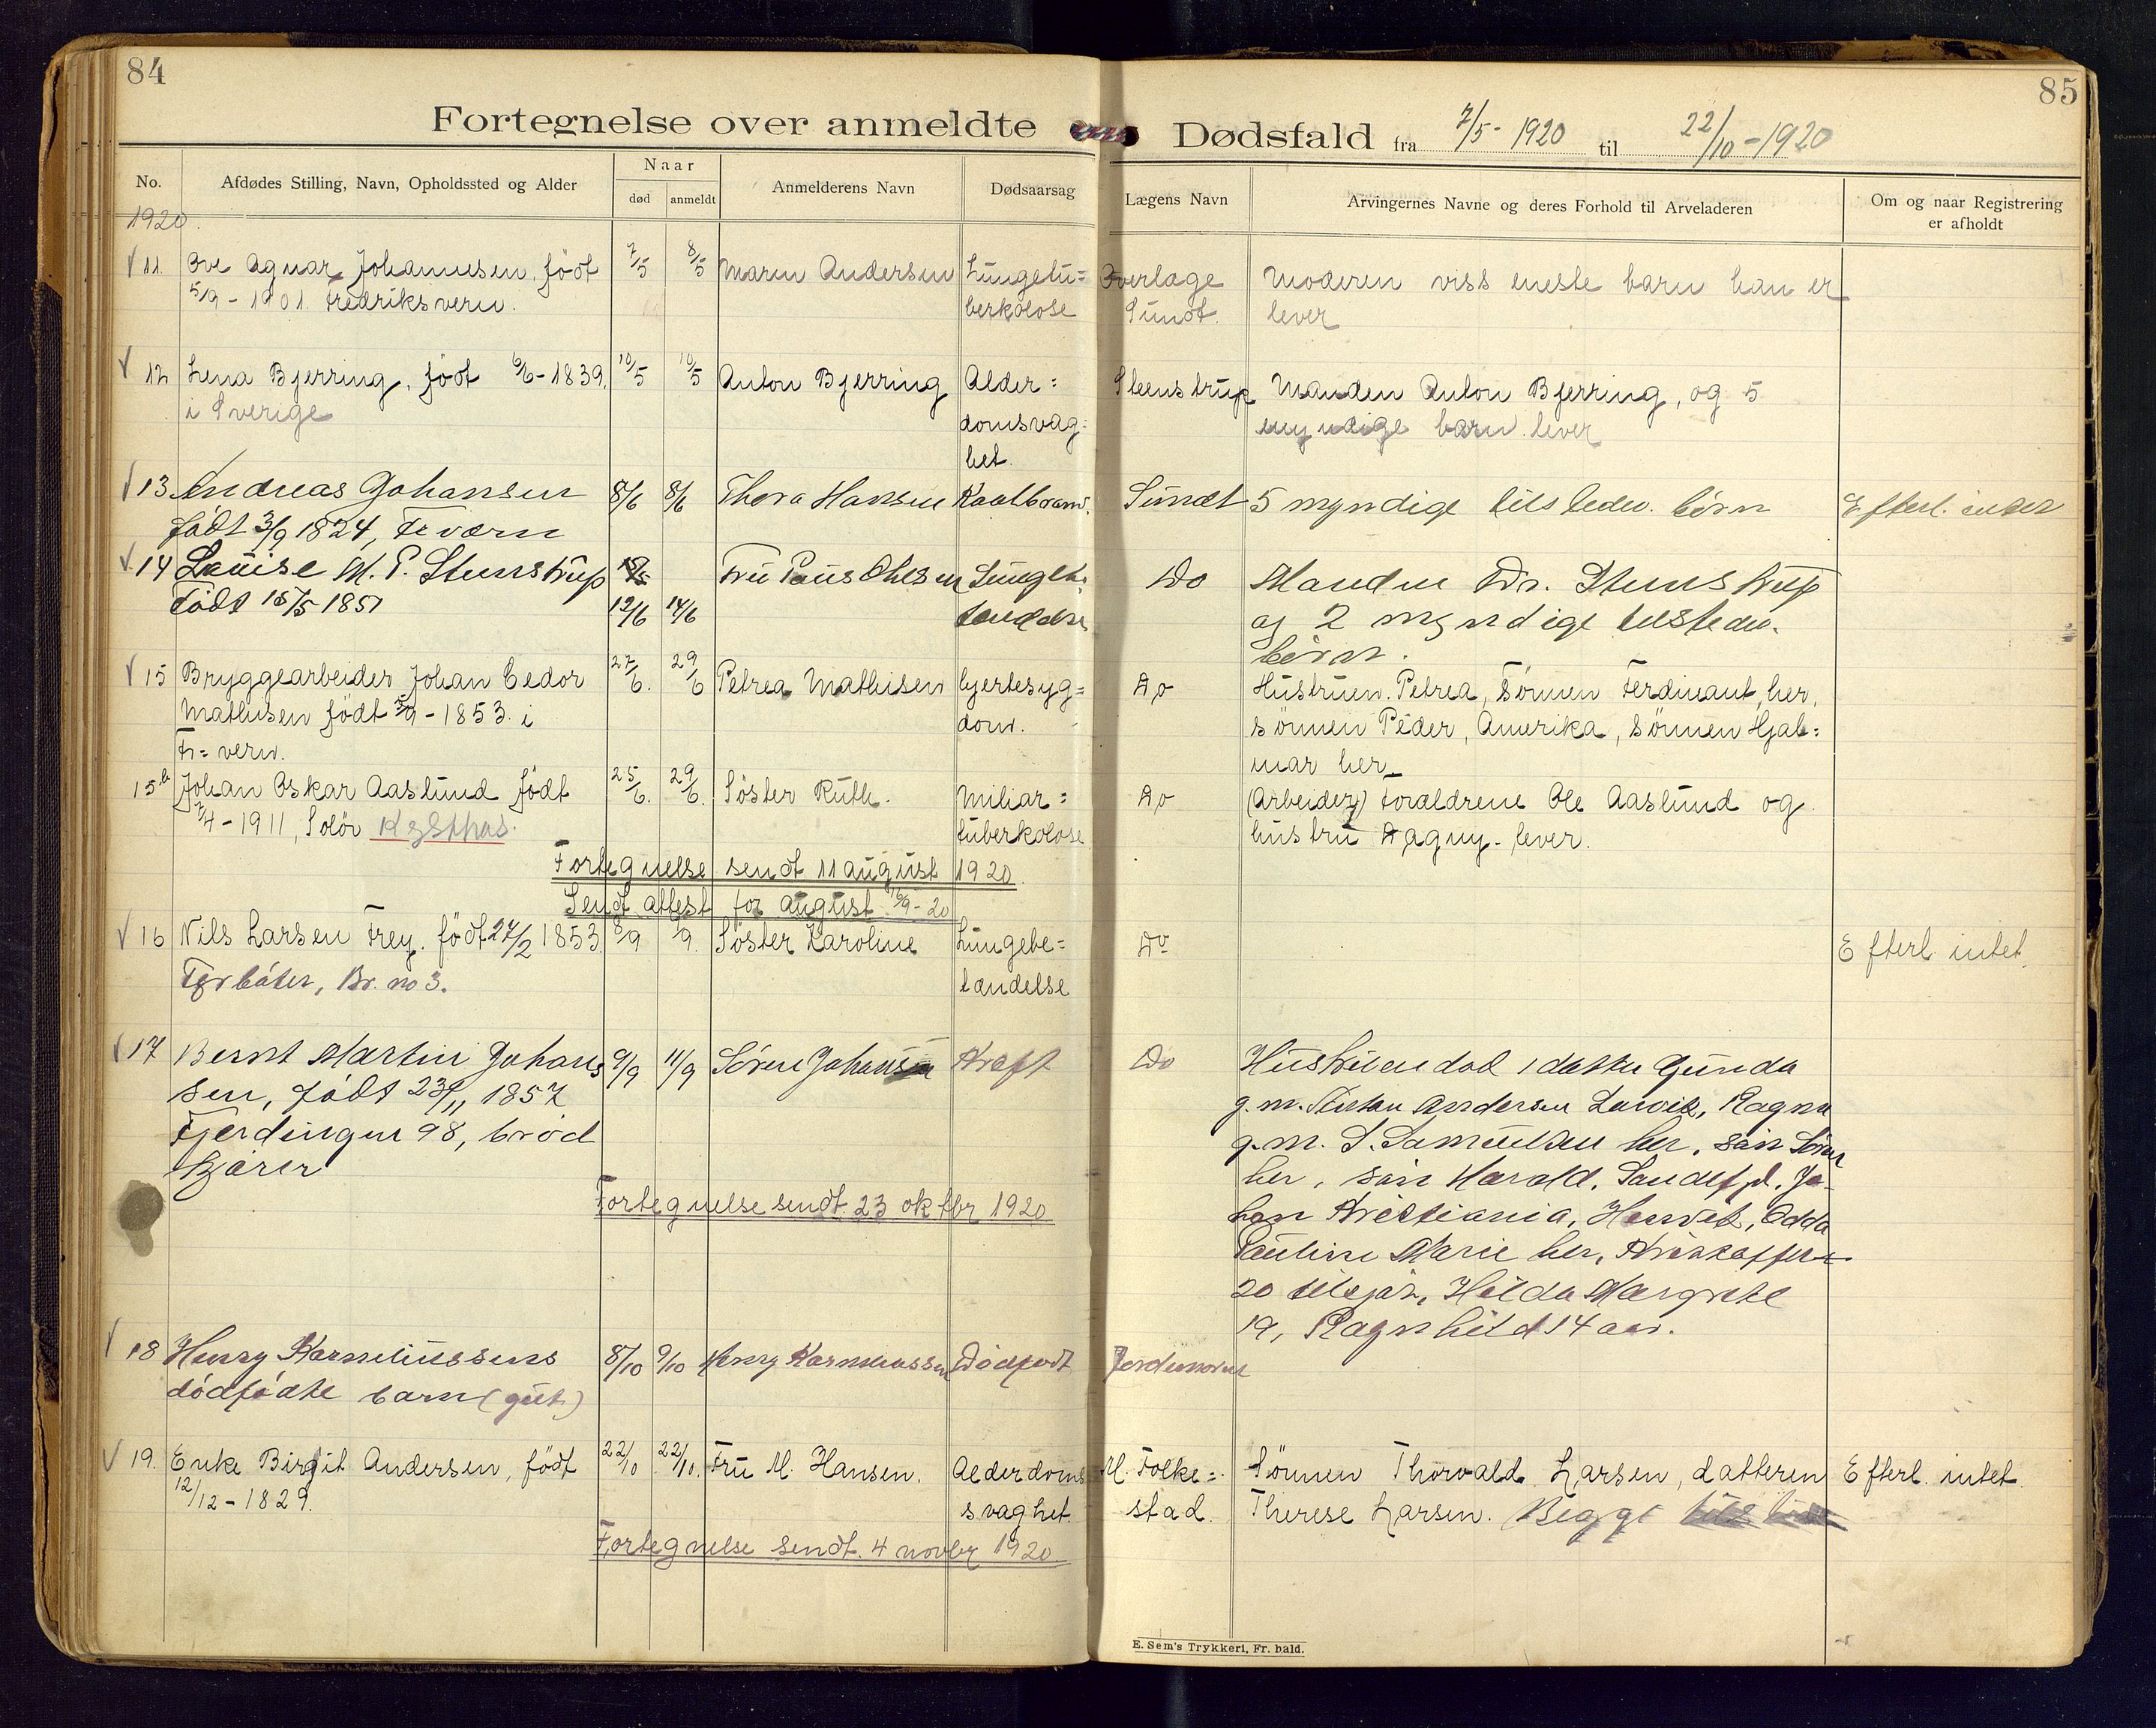 84
85
Fortegnelse over anmeldte Dødsfald fra 7/5 - 1920 til 22/10 - 1920
No.
Afdødes Stilling, Navn, Opholdssted og Alder
Naar
død
anmeldt
Anmelderens Navn
Dødsaarsag
Lægens Navn
Arvingernes Navne og deres Forhold til Arveladeren
Om og naar Registrering
er afholdt
1920.
11 Ove Agnar Johannesen, født 7/5 8/5 Maren Andersen Lungetu= Overlæge Moderen viss eneste barn han er
5/9 - 1901. Fredriksvern. berkolose Sundt. lever
12 Lena Bjerring, født 6/6 - 1839, 10/5 10/5 Anton Bjerring Alder= Steenstrup Manden Anton Bjerring, og 5
i Sverige domsvag= myndige barn lever
het.
13 Andreas Johansen 8/6 8/6 Thora Hansen Kaalbrand. Sundt 5 myndige tilstedev. börn Efterl. intet
født 3/9 1824, Fr værn
14 Louise M. P. Steenstrup 15/5 Fru Paus Olesen Lungebe Do Manden Dr. Steenstrup
født 15/5 1851 12/6 14/6 tændelse og 2 myndige tilstedev.
börn.
15 Bryggearbeider Johan Cedor 27/6. 29/6 Petrea Mathisen hjertesyg= Do Hustruen Petrea, Sönnen Ferdinant, her,
Mathisen født 5/9 - 1853. i dom. sönnen Peder, Amerika, sönnen Hjal=
Fr= vern. mar her
15b Johan Oskar Aaslund født 25/6. 29/6. Söster Ruth. Miliar= Do (Arbeider) Foraldrene Ole Aaslund og
7/4 - 1911, Solör Kysthos. tuberkolose hustru Dagny - lever.
Fortegnelse sendt 11 august 1920.
Sendt attest for august 16/9 - 20
16 Nils Larsen Frey. født 27/2 1853 8/9 /9. Söster Karoline Lungebe= Do Efterl. intet.
Tørbåten, Br. no 3. tændelse
17 Bernt Martin Johan 9/9 11/9 Sören Johansen Kræft Do Hustruen död, datter Gunda
sen, född 23/11 1857 g. m. Anders Andersen Larvik, Ragna
Fjerdingen 98, bröd g. m. S. Samuelsen her, sön Sören
kjörer her, sön Harald, Sandefjd. Jo-
Fortegnelse sendt 23 oktbr 1920 han Kristiania, Hendrik, Odda
Pauline Marie her, Kristoffer
20 tilsjös, Hilda Margrete
19, Ragnhild 14 aar.
18 Henry Karneliussens 8/10 9/10 Henry Karneliussen Dödfødt Jordemoder
dödfødte barn (gut)
19. Enke Birgit Andersen, født 22/10 22/10. Fru M. Hansen. Alderdoms M. Folke= Sönnen Thorvald Larsen, datteren Efterl. intet.
12/12 - 1829. svaghet. stad. Therese Larsen. Begge
Fortegnelse sendt. 4 novbr 1920
E. Sem's Trykkeri, Fr. hald.